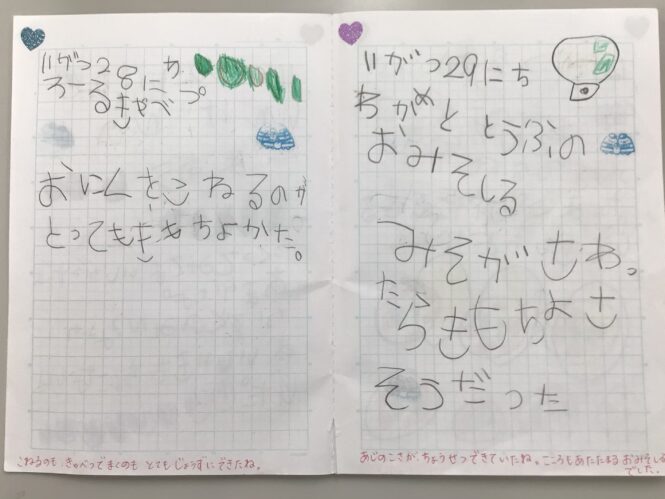 11がつ28にち
ろーるきゃべつ
おにくをこねるのが
とってもきもちよかた。
こねるのも、きゃべつでまくのも とてもじょうずにできたね。
11がつ29にち
わかめととうふの
おみそしる
みそがさわっ
たらきもちよさ
そうだった
あじのこさが、ちょうせつできていたね。こころもあたたまるおみそしる
でした。